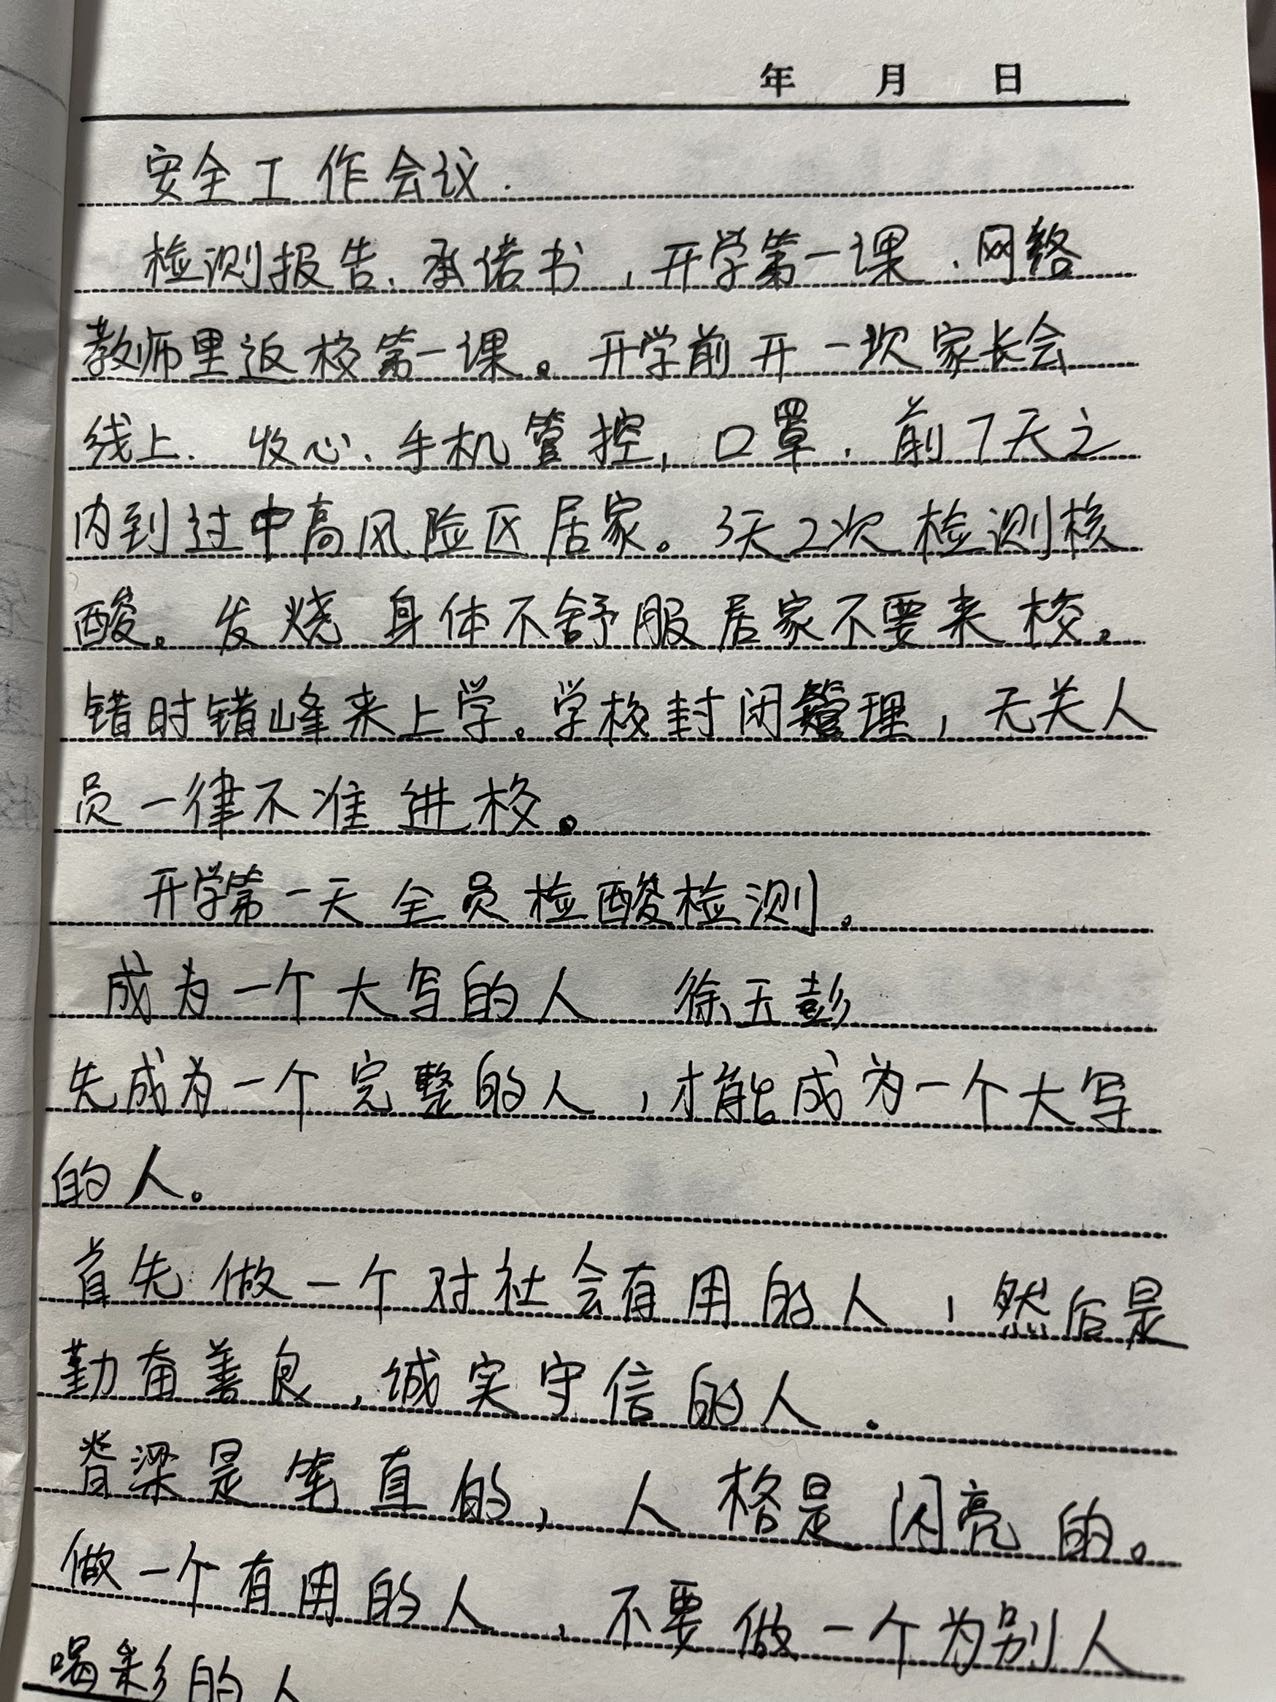 年 月 日
安全工作会议.
检测报告、承诺书,开学第一课、网络
教师里返校第一课。开学前开一次家长会
线上、收心、手机管控,口罩、前7天之
内到过中高风险区居家。3天2次检测核
酸。发烧 身体不舒服居家不要来校。
错时错峰来上学。学校封闭管理,无关人
员一律不准进校。
开学第一天全员检酸检测。
成为一个大写的人 徐玉彭
先成为一个完整的人,才能成为一个大写
的人。
首先做一个对社会有用的人,然后是
勤奋善良,诚实守信的人.
脊梁是笔直的,人格是闪亮的。
做一个有用的人,不要做一个为别人
喝彩的人